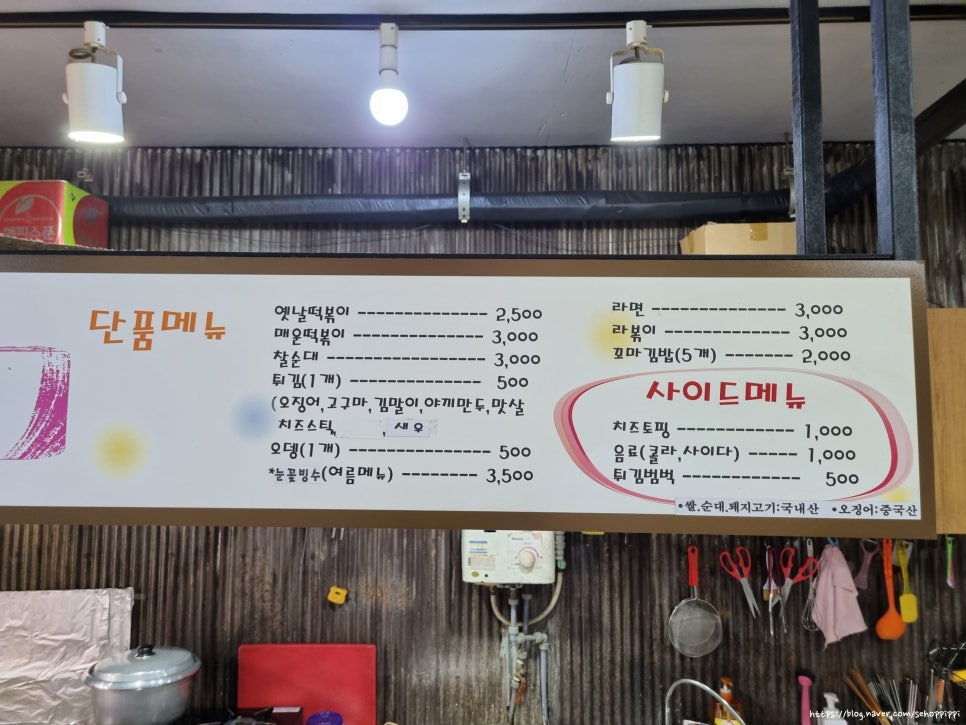 단품메뉴
옛날떡볶이 --------------- 2,500
매운떡볶이 --------------- 3,000
찰순대 ------------------ 3,000
튀김(1개) --------------- 500
(오징어,고구마,김말이,야끼만두,맛살
치즈스틱, ,새우
오뎅(1개) ---------------- 500
*눈꽃빙수(여름메뉴) --------- 3,500
라면 ---------------- 3,000
라볶이 -------------- 3,000
꼬마김밥(5개) -------- 2,000
사이드메뉴
치즈토핑 ------------- 1,000
음료(콜라,사이다) ------ 1,000
튀김범벅 ------------- 500
•쌀,순대,돼지고기:국내산 •오징어:중국산
https://blog.naver.com/sehoppippi